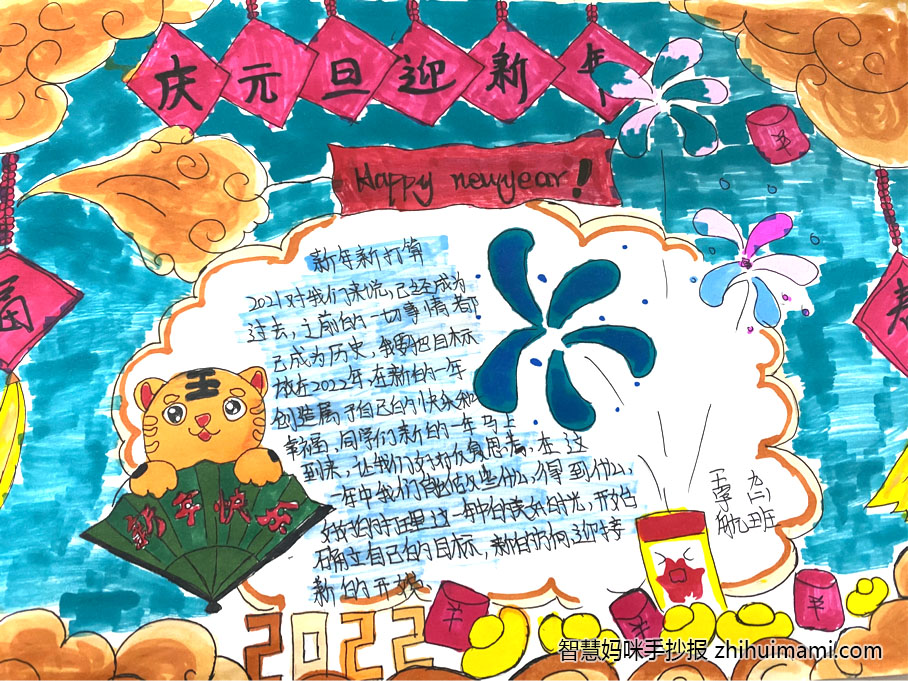 庆元旦迎新年
Happy newyear!
福
春
新年新打算
2021对我们来说,已经成为
过去,之前的一切事情都
已成为历史,我要把目标
放在2022年,在新的一年
创造属于自己的快乐和
幸福,同学们新的一年马上
到来,让我们好好反复思考,在这
一年中我们自己做些什么,得到什么,
好好的打理这一年中的美好时光,开始
确立自己的目标,新的方向迎接
新的开始
王
新年快乐
李航
九(二)班
2022
智慧妈咪手抄报 zhihuimami.com